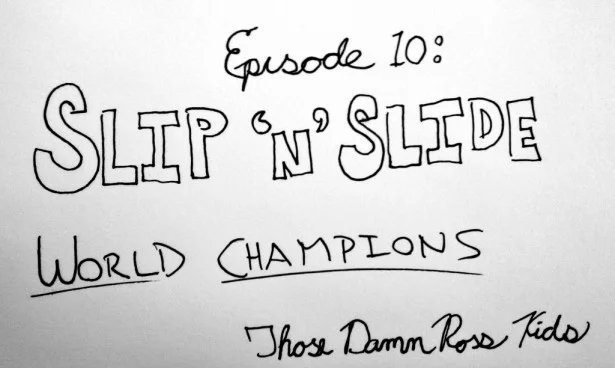 Episode 10:
SLIP 'N' SLIDE
WORLD CHAMPIONS
Those Damn Ross Kids